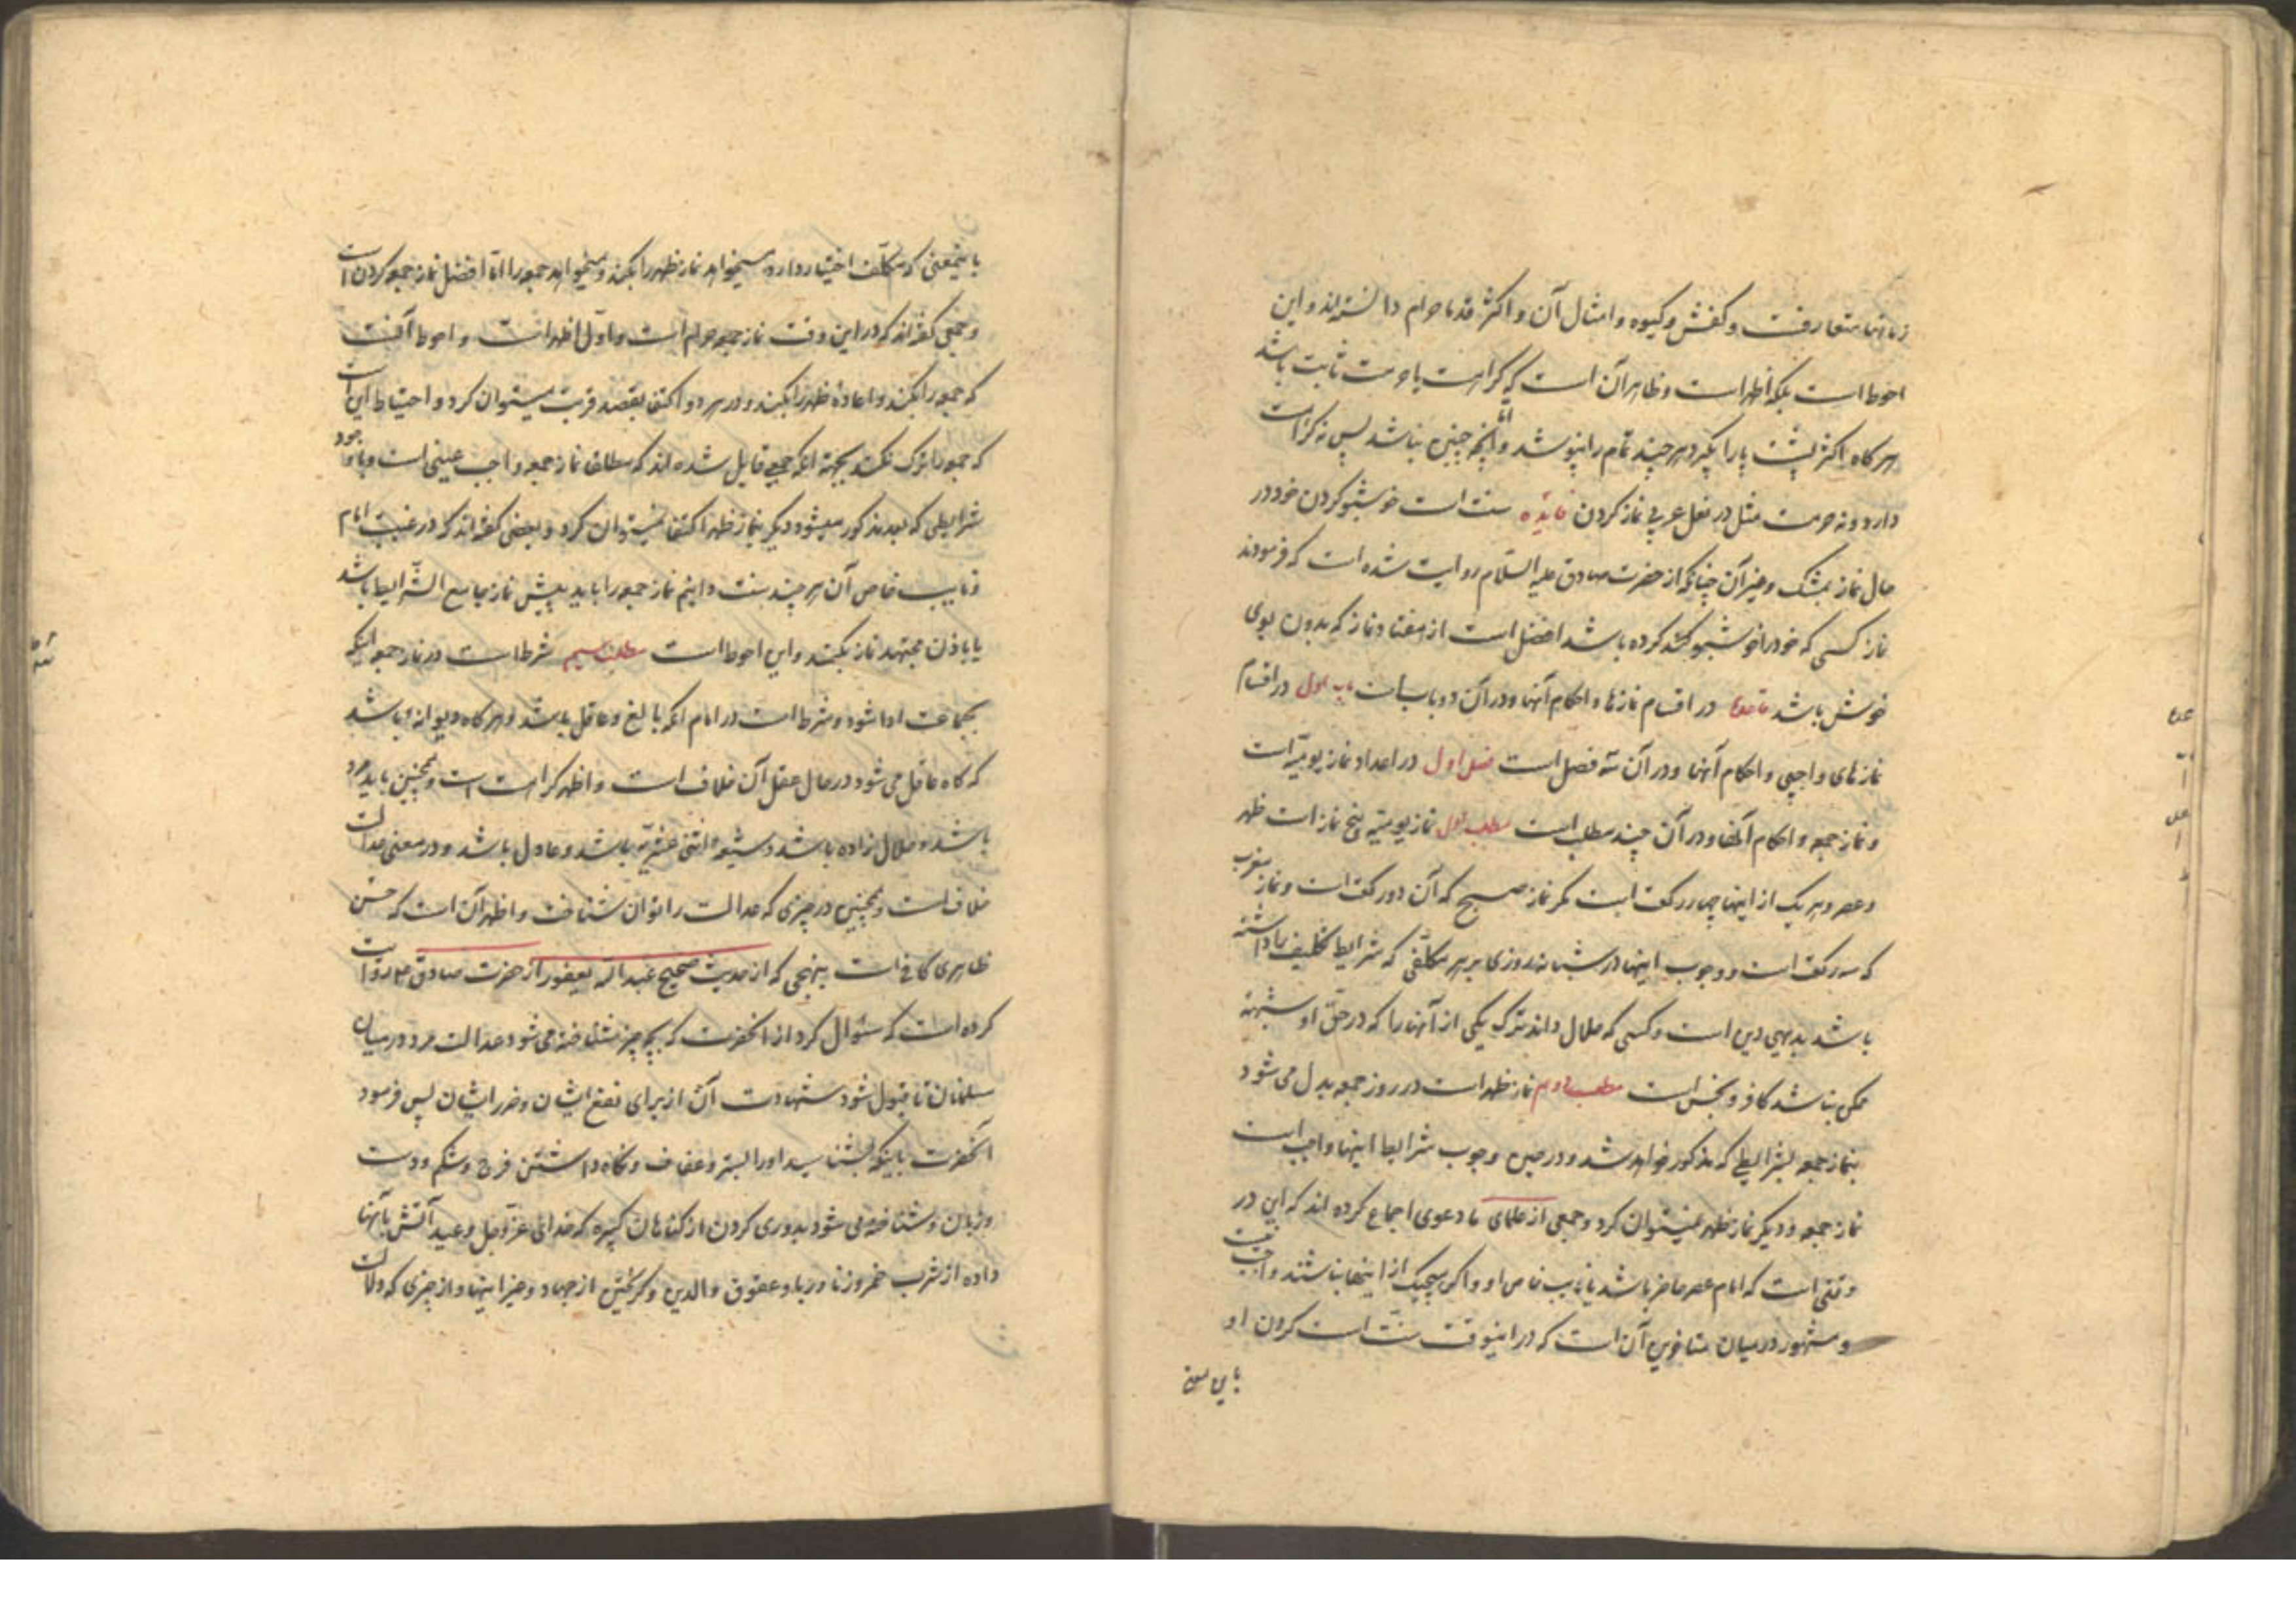 زمانها متعارفست و کفش و کیوه و امثال آن و اکثر قدما حرام دانسته‌اند و این
احوط است بلکه اظهر است و ظاهر آن است که کراهت یا حرمت ثابت باشد
هر گاه اکثر پشت پا را بگیرد هر چند تمام را نپوشد و امّا آنچه چنین نباشد پس نه کراهت
دارد و نه حرمت مثل در نعل عربی نماز کردن فایده سنت است خوشبو کردن خود در
حال نماز بمشک و غیر آن چنانکه از حضرت صادق علیه السّلام روایت شده است که فرمودند
نماز کسی که خود را خوشبو کرده باشد افضل است از هفتاد نماز که بدون بوی
خوش باشد در اقسام نمازها و احکام آنها و در آن دو باب است باب اول در اقسام
نمازهای واجبی و احکام آنها و در آن سه فصل است فصل اول در اعداد نماز یومیّه است
و نماز جمعه و احکام آنها و در آن چند مطلب است مطلب اول نماز یومیّه پنج نماز است ظهر
و عصر و هر یک از اینها چهار رکعت است مگر نماز صبح که آن دو رکعت است و نماز مغرب
که سه رکعت است و وجوب اینها در شبانه روزی بر هر مکلّفی که شرایط تکلیف را داشته
باشد بدیهی دین است و کسی که حلال داند ترک یکی از آنها را که در حقّ او شبهه
ممکن نباشد کافر و نجس است مطلب دوم نماز ظهر است در روز جمعه بدل می شود
بنماز جمعه بشرایطی که مذکور خواهد شد و در حین وجوب شرایط اینها واجب است
نماز جمعه و دیگر نماز ظهر نمیتوان کرد و جمعی از علمای ما دعوی اجماع کرده اند که این در
وقتی است که امام عصر حاضر باشد یا نایب خاص او و اگر هیچیک از اینها نباشند واجب نیست
و مشهور در میان متاخرین آن است که در اینوقت سنّت است کردن او
باین معنی
باینمعنی که مکلّف اختیار دارد میخواهد نماز ظهر را بکند و میخواهد جمعه را امّا افضل نماز جمعه کردن است
و جمعی گفته‌اند که در این وقت نماز جمعه حرام است و اوّل اظهر است و احوط آنست
که جمعه را بکند و اعاده ظهر را بکند و در هر دو اکتفا بقصد قربت میتوان کرد و احتیاط این است
که جمعه را ترک نکند بجهة آنکه جمعی قایل شده اند که مطلقا نماز جمعه واجب عینی است و با وجود
شرایطی که بعد مذکور میشود دیگر بنماز ظهر اکتفا نمیتوان کرد و بعضی گفته اند که در غیبت امام
و نایب خاص آن هر چند سنت دانیم نماز جمعه را باید پیش نماز جامع الشّرایط باشد
یا باذن مجتهد نماز بکند و این احوط است مطلب سیم شرط است در نماز جمعه اینکه
بجماعت ادا شود و شرط است در امام آنکه بالغ و عاقل باشد و هر گاه دیوانه باشد
که گاه عاقل می شود در حال عقل آن خلاف است و اظهر کراهت است و همچنین باید مرد
باشد و حلال زاده باشد و شیعه اثنی عشریّه باشد و عادل باشد و در معنی عدالت
خلاف است و همچنین در چیزی که عدالت را توان شناخت و اظهر آن است که حسن
ظاهری کافی است بنهجی که از حدیث صحیح عبد اللّه یعفور از حضرت صادق ع روایت
کرده است که سئوال کرد از آنحضرت که بچه چیز شناخته می شود عدالت مرد در میان
مسلمانان تا قبول شود شهادت آن از برای نفع ایشان و ضرر ایشان پس فرمود
آنحضرت باینکه بشناسید او را بستر و عفاف و نگاه داشتن فرج و شکم و دست
و زبان و شناخته می شود بدوری کردن از گناهان کبیره که خدای عزّ و جل وعید آتش بآنها
داده از شرب خمر و زنا و ربا و عقوق والدین و گریختن از جهاد و غیر اینها و از چیزی که دلالت